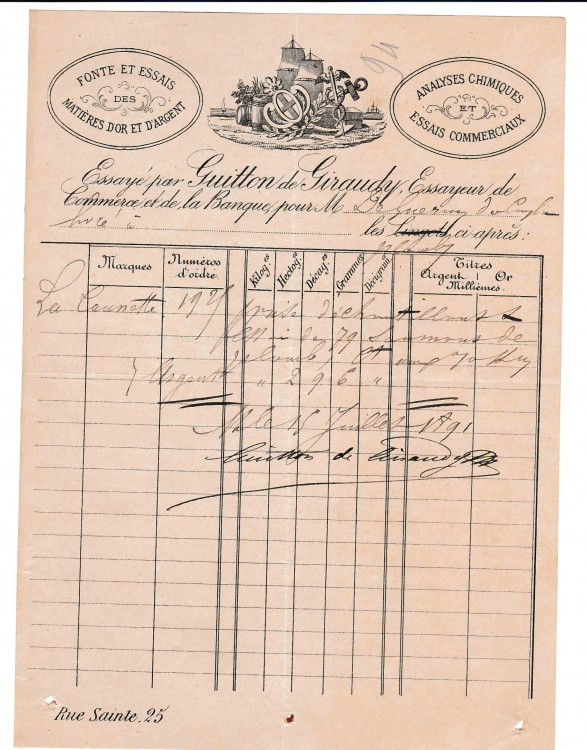 FONTE ET ESSAIS
DES
MATIÈRES D'OR ET D'ARGENT
ANALYSES CHIMIQUES
ET
ESSAIS COMMERCIAUX
Essayé par Guitton de Giraudy, Essayeur de
Commerce et de la Banque, pour M
les ci-après:
Marques
Numéros d'ordre
Kilog.es
Hectog.es
Décag.es
Grammes
Décigram.
Titres
Argent Or
Millièmes.
La Caunette
prise d'échantillons
79 saumons de
Argent " 2 9 6 "
15 Juillet 1891
Guitton de Giraudy
Rue Sainte. 25